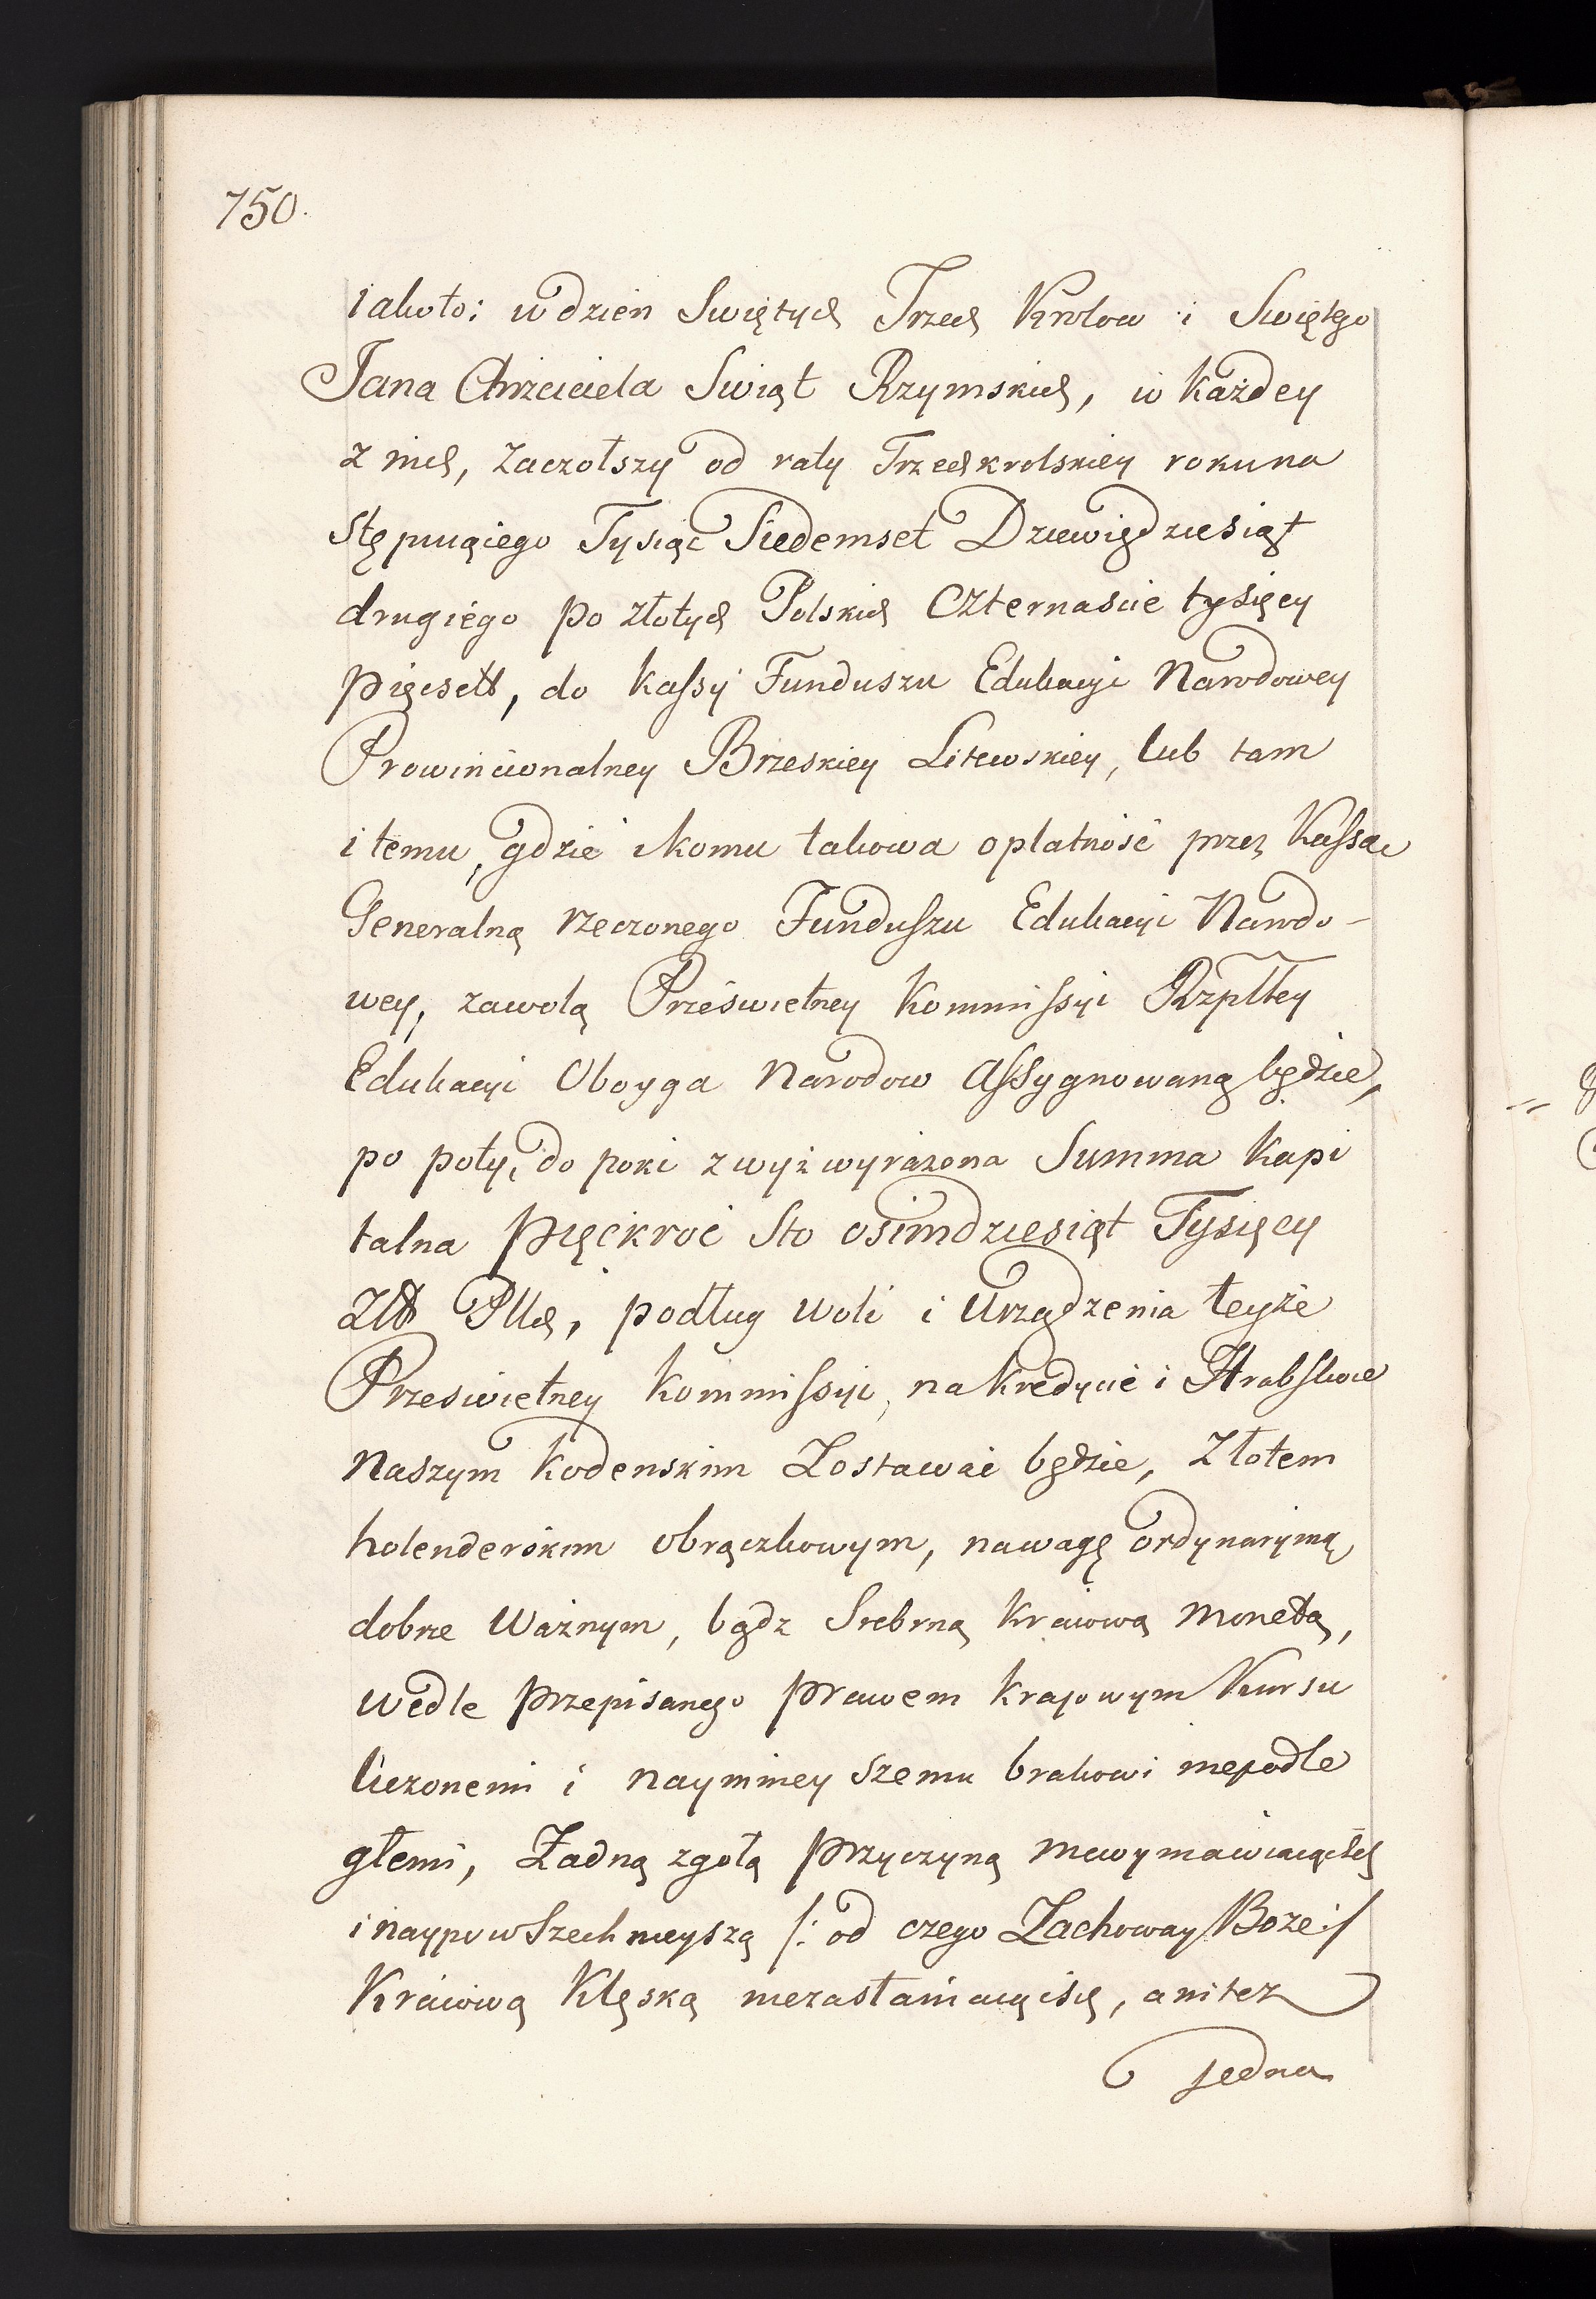 750.
iakoto: w dzien Swiętych Trzech Krolow i Swiętego
Jana Chrzciciela Swiąt Rzymskich, w każdey
z nich, zaczołszy od raty Trzechkrolskiey roku na
stępuiącego Tysiąc Siedemset Dziewięćdziesiąt
drugiego po złotych Polskich Czternascie tysięcy
pięcset, do kassy Funduszu Edukacyi Narodowey
Prowincionalney Brzeskiey Litewskiey, lub tam
i temu, gdzie i komu takowa opłatność przez Kassę
Generalną rzeczonego Funduszu Edukacyi Narodo-
wey, za wolą Prześwietney Kommissyi Rzpltey
Edukacyi Oboyga Narodow Assygnowaną będzie,
po poty, do poki zwyż wyrażona Summa Kapi
talna pięćkroć Sto osimdziesiąt Tysięcy
Złt Pllch, podług woli i Urządzenia teyże
Prześwietney Kommissyi, na kredycie i Hrabstwie
Naszym Kodenskim Zostawać będzie, Złotem
holenderskim obrączkowym, na wagę ordynaryiną
dobrze Ważnym, bądz Srebrną Kraiową Monetą,
wedle przepisanego prawem krajowym Kursu
liczonemi i nayminey szemu brakowi niepodle
głemi, Żadną zgołą przyczyną niewymawiaiąc się
i naypowszechnieyszą /: od czego Zachoway Boże :/
Kraiową Klęską niezasłaniaiąc się, ani też
jedna